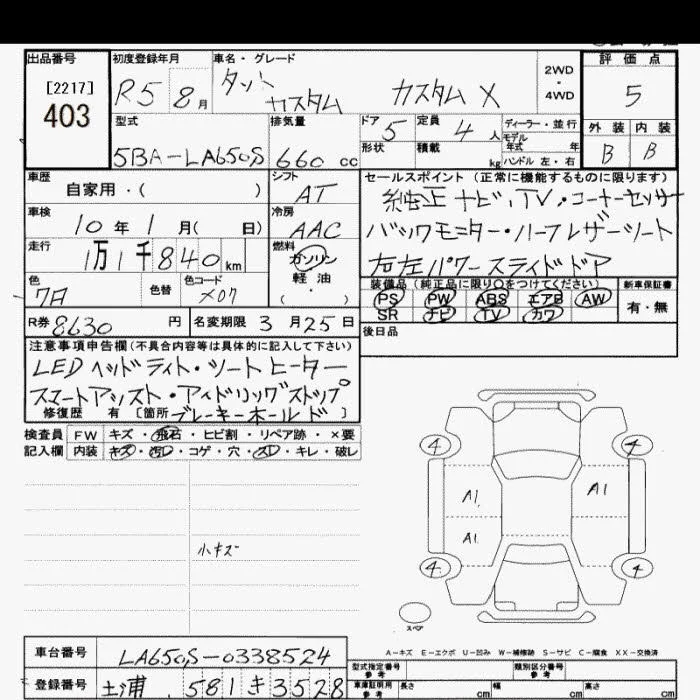 出品番号 初度登録年月 車名・グレード 評価点
[2217]
403
R5 8月 タント カスタム カスタム X 2WD・4WD 5
外装 内装
B B
型式 排気量 ドア 定員 ディーラー・並行
5BA-LA650S 660cc 5 4人 モデル年式 年
形状 積載 kg ハンドル 左・右
車歴 シフト セールスポイント (正常に機能するものに限ります)
自家用・( ) AT 純正ナビ、TV・コーナーセンサー
車検 冷房
10年1月( 日) AAC バックモニター・ハーフレザーシート
走行 燃料
1万1千840km ガソリン 右左パワースライドドア
軽油
( )
色 色替 色コード 装備品 (純正品に限り○をつけてください) 新車保証書
クロ X07 PS PW ABS エアB AW 有・無
SR ナビ TV カワ
R券 8630円 名変期限 3月25日 後日品
注意事項申告欄(不具合内容等は具体的に記入して下さい)
LEDヘッドライト・シートヒーター
スマートアシスト・アイドリングストップ
修復歴 有 [箇所 ブレーキホールド ]
検査員 FW キズ・飛石・ヒビ割・リペア跡・×要
記入欄 内装 キズ・汚レ・コゲ・穴・スレ・キレ・破レ
4 4
A1 A1
A1
小キズ
4 4
スペア
A-キズ E-エクボ U-凹み W-補修跡 S-サビ C-腐食 XX-交換済
車台番号 LA650S-0338524 型式指定番号 参考 類別区分番号 参考
登録番号 土浦 581 き 3528 車庫証明用 参考 長さ cm 幅 cm 高さ cm